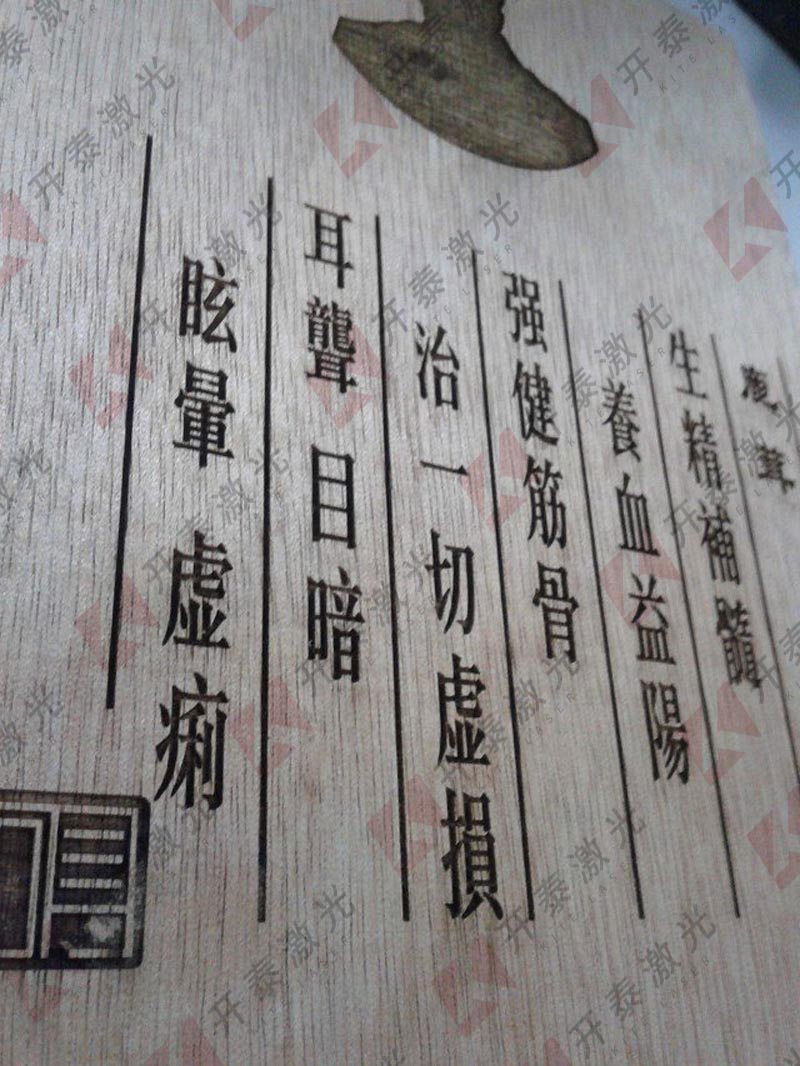 鹿茸
生精補髓
養血益陽
强健筋骨
治一切虚損
耳聾 目暗
眩暈 虚痢
开泰激光
KITE LASER